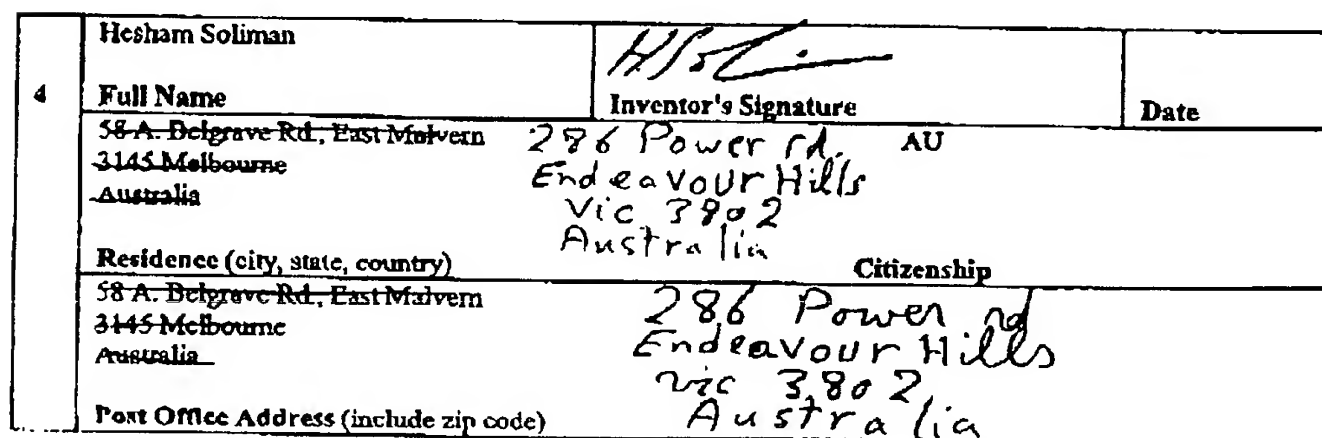 Hesham Soliman
4
Full Name
Inventor's Signature
Date
58 A. Belgrave Rd., East Malvern
3145 Melbourne
Australia
286 Power rd.
Endeavour Hills
Vic 3802
Australia
AU
Residence (city, state, country)
Citizenship
58 A. Belgrave Rd., East Malvern
3145 Melbourne
Australia
286 Power rd
Endeavour Hills
Vic 3802
Australia
Post Office Address (include zip code)